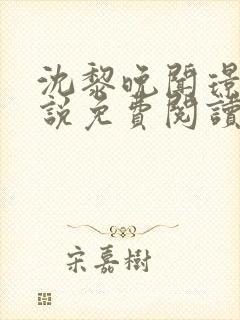 沈黎晚聞璟
說免費閱讀
宋嘉樹